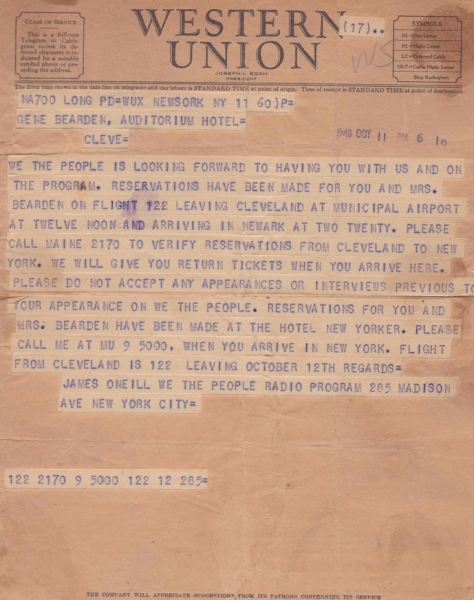 CLASS OF SERVICE
This is a full-rate
Telegram or Cable-
gram unless its de-
ferred character is in-
dicated by a suitable
symbol above or pre-
ceding the address.
WESTERN
UNION
JOSEPH L. EGAN
PRESIDENT
(17)..
SYMBOLS
DL=Day Letter
NL=Night Letter
LC=Deferred Cable
NLT=Cable Night Letter
Ship Radiogram
The filing time shown in the date line on telegrams and day letters is STANDARD TIME at point of origin. Time of receipt is STANDARD TIME at point of destination
NA700 LONG PD=WUX NEWSORK NY 11 60)P=
GENE BEARDEN, AUDITORIUM HOTEL=
CLEVE=
OCT 11 PM 6 10
WE THE PEOPLE IS LOOKING FORWARD TO HAVING YOU WITH US AND ON
THE PROGRAM. RESERVATIONS HAVE BEEN MADE FOR YOU AND MRS.
BEARDEN ON FLIGHT 122 LEAVING CLEVELAND AT MUNICIPAL AIRPORT
AT TWELVE NOON AND ARRIVING IN NEWARK AT TWO TWENTY. PLEASE
CALL MAINE 2170 TO VERIFY RESERVATIONS FROM CLEVELAND TO NEW
YORK. WE WILL GIVE YOU RETURN TICKETS WHEN YOU ARRIVE HERE.
PLEASE DO NOT ACCEPT ANY APPEARANCES OR INTERVIEWS PREVIOUS TO
YOUR APPEARANCE ON WE THE PEOPLE. RESERVATIONS FOR YOU AND
MRS. BEARDEN HAVE BEEN MADE AT THE HOTEL NEW YORKER. PLEASE
CALL ME AT MU 9 5000. WHEN YOU ARRIVE IN NEW YORK. FLIGHT
FROM CLEVELAND IS 122 LEAVING OCTOBER 12TH REGARDS=
JAMES ONEILL WE THE PEOPLE RADIO PROGRAM 285 MADISON
AVE NEW YORK CITY=
122 2170 9 5000 122 12 285=
THE COMPANY WILL APPRECIATE SUGGESTIONS FROM ITS PATRONS CONCERNING ITS SERVICE